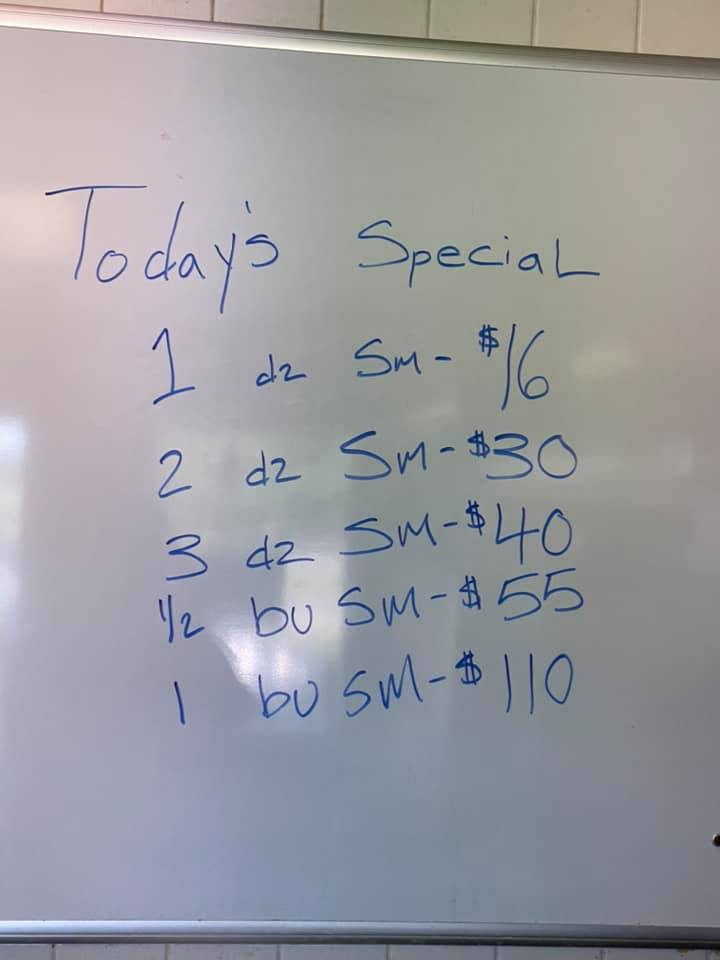 Today's Special
1 dz Sm - $16
2 dz Sm - $30
3 dz Sm - $40
1/2 bu Sm - $55
1 bu Sm - $110